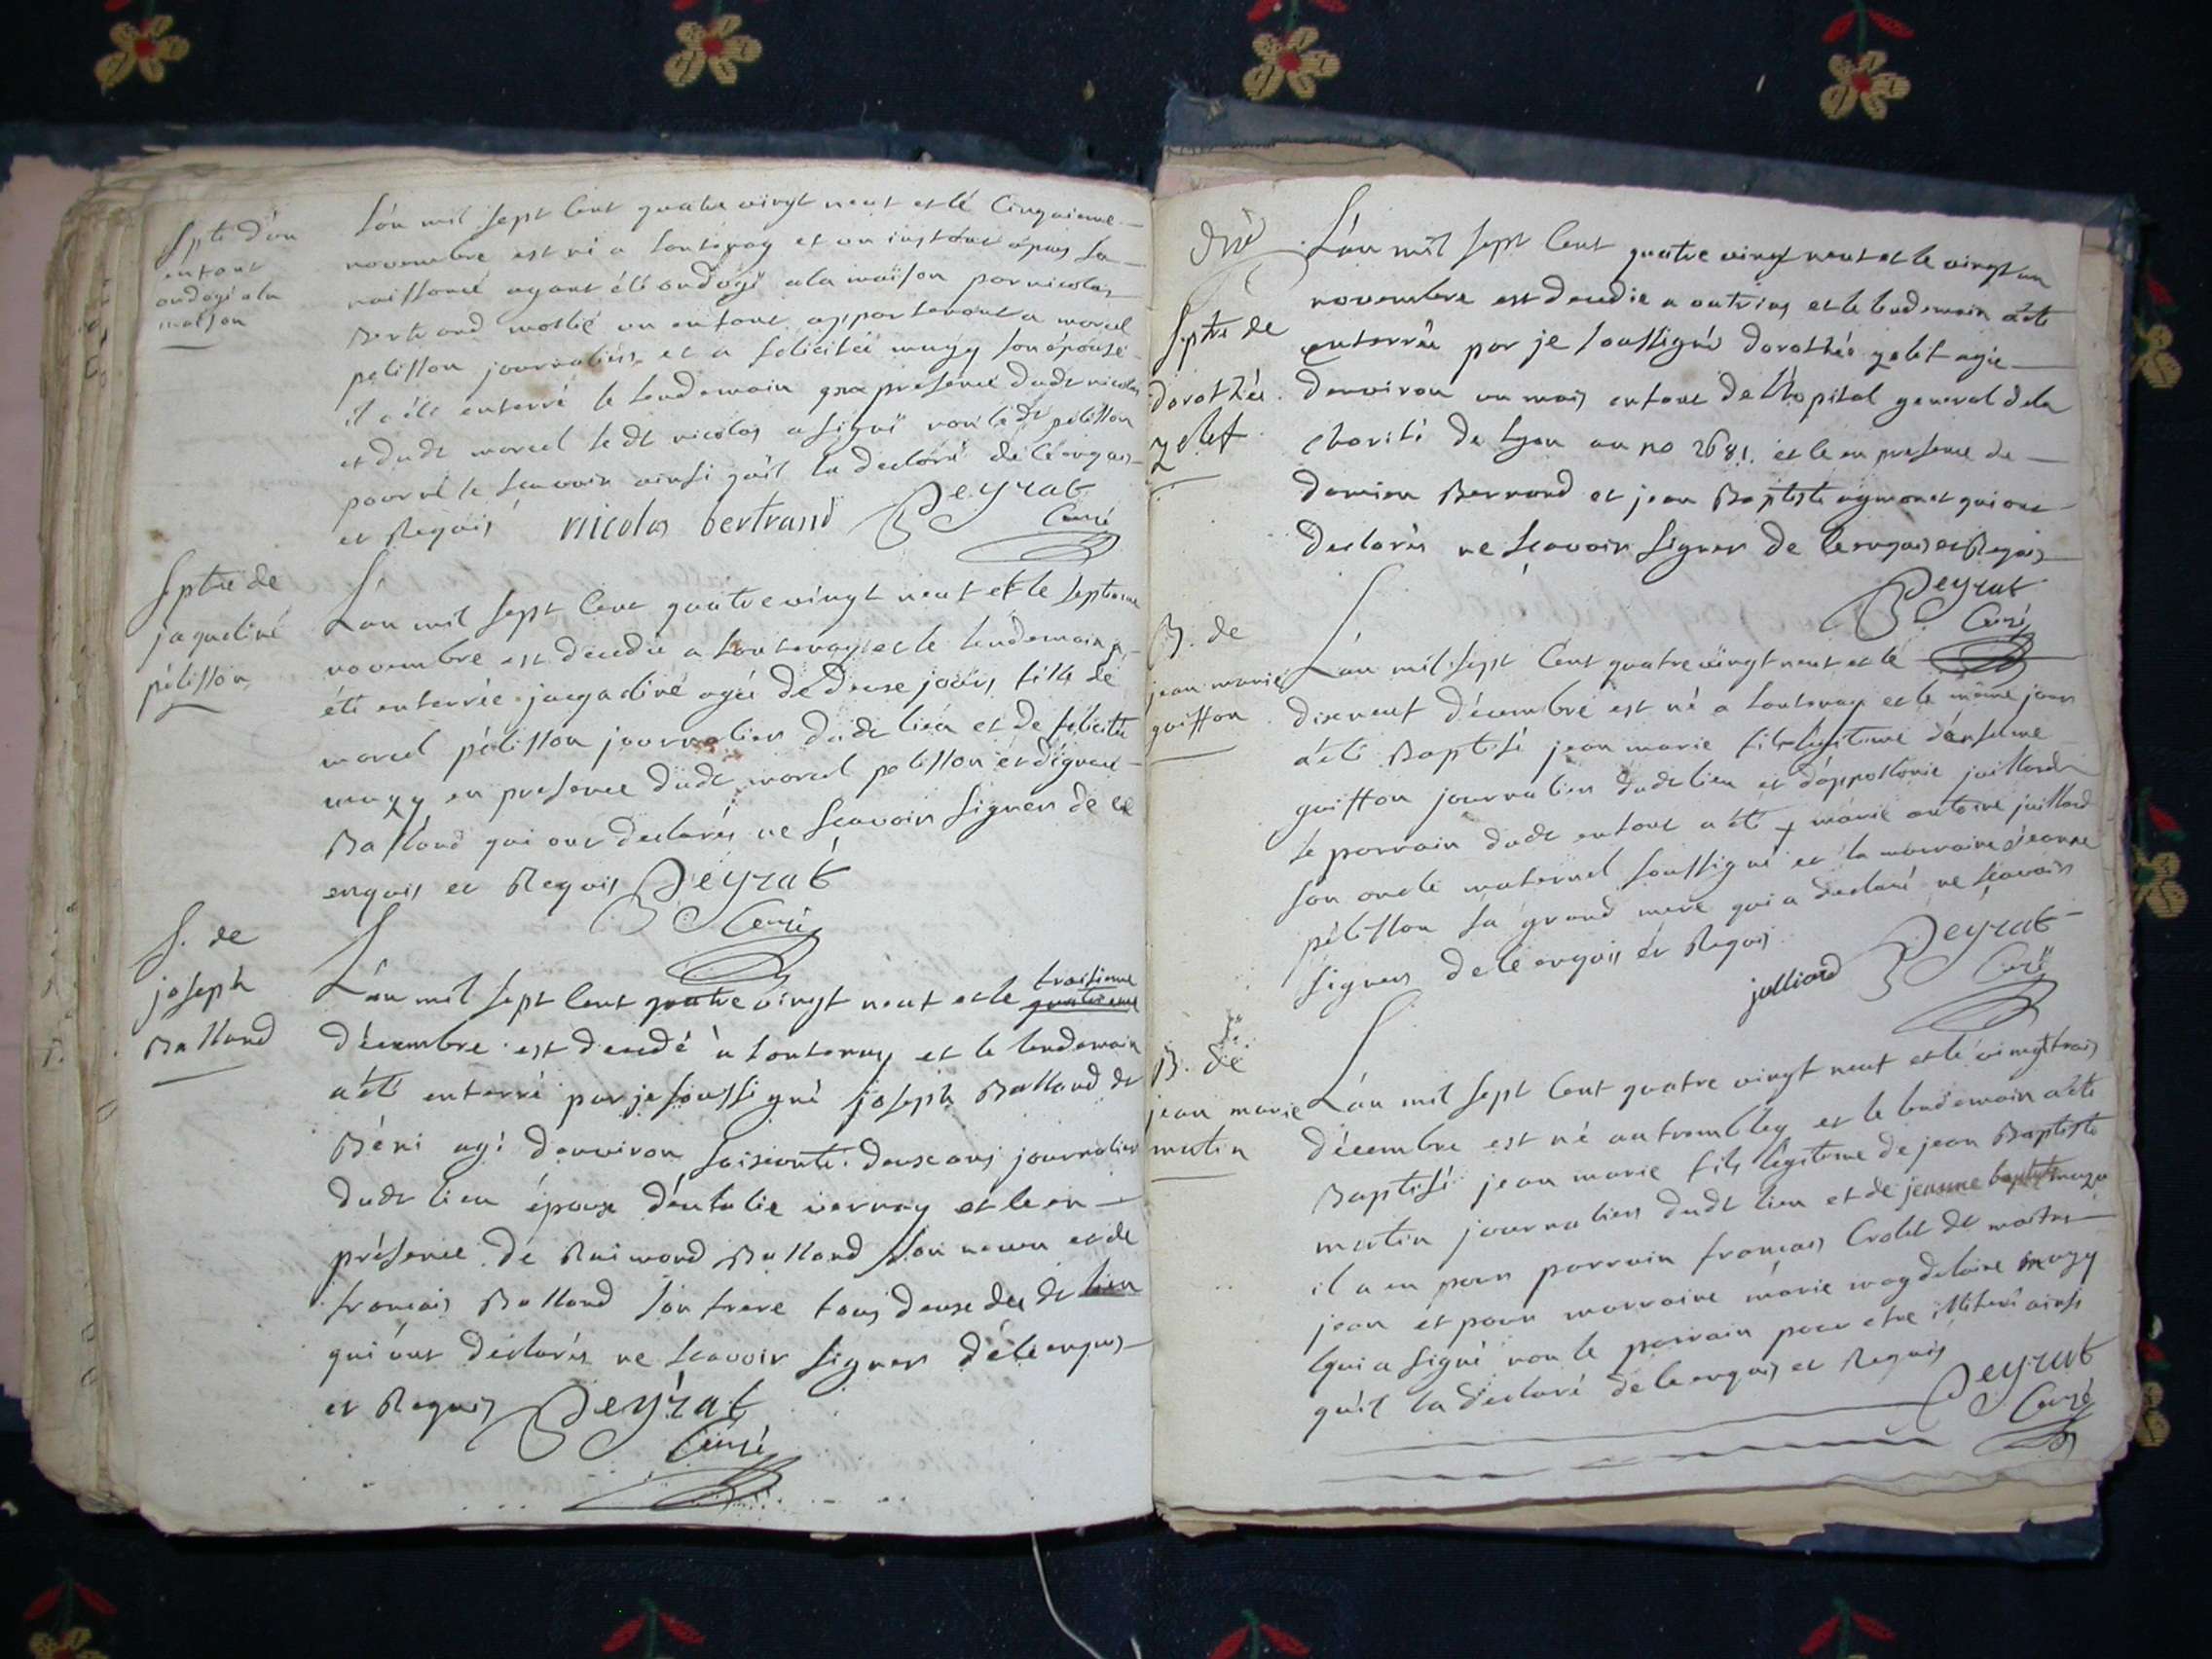 Sptre d'un
enfant
ondoyé a la
maison
L'an mil sept cent quatre vingt neuf et le cinquieme
novembre est né a fontenay et un instant apres sa
naissance ayant été ondoyé a la maison par nicolas
Bertrand un enfant appartenant a marcel
pelisson journalier et a felicitée mugy son épouse
il a été enterré le lendemain presence dudt nicolas
et dudt marcel ledt nicolas a signé non ledt pelisson
pour ne le scavoir ainsi qu'il l'a declaré de ce enquis
et Requis nicolas bertrand Peyrat
Curé
Sptre de
jaqueline
pélisson
L'an mil sept cent quatre vingt neuf et le septieme
novembre est decedée a fontenay et le lendemain a
été enterrée jaqueline agée de deux jours fille de
marcel pélisson journalier dudt lieu et de felicitée
mugy en presence dudt marcel pelisson et
Balland qui ont declarés ne scavoir signer de ce
enquis et Requis Peyrat
Curé
S. de
joseph
Balland
L'an mil sept cent quatre vingt neuf et le troisieme
quatrieme
décembre est decedé a fontenay et le lendemain
a été enterré par je soussigné joseph Balland dt
Béni agé d'environ soisente deux ans journalier
dudt lieu époux d'eulalie vernay et le en
présence de Raimond Balland son neveu et de
francois Balland son frere tous deux du dt lieu
qui ont declarés ne scavoir signer de ce enquis
et Requis Peyrat
Curé
Sptre de
dorothée
zelef
L'an mil sept cent quatre vingt neuf et le vingt un
novembre est decedée a outrias et le lendemain a été
enterrée par je soussigné dorothée zelef agée
d'environ un mois enfant de l'hopital general de la
charité de lyon au no 2681. et le en presence de
damien Bernand et jean Baptiste aymonet qui ont
declarés ne scavoir signer de ce enquis et Requis
Peyrat
Curé
B. de
jean marie
guiffon
L'an mil sept cent quatre vingt neuf et le
dix neuf décembre est né a fontenay et le même jour
a été Baptisé jean marie fils legitime d'anselme
guiffon journalier dudt lieu et d'appollonie juillard
le parrain dudt enfant a été marie antoine juillard
son oncle maternel soussigné et la marraine jeanne
pélisson sa grand mere qui a declaré ne scavoir
signer de ce enquis et Requis
julliard Peyrat
Curé
B. de
jean marie
mutin
L'an mil sept cent quatre vingt neuf et le vingt trois
décembre est né au trembley et le lendemain a été
Baptisé jean marie fils legitime de jean Baptiste
mutin journalier dudt lieu et de jeanne
il a eu pour parrain francois Crolet de
jean et pour marraine marie magdelaine mugy
qui a signé non le parrain pour etre illiteré ainsi
qu'il l'a declaré de ce enquis et Requis
Peyrat
Curé